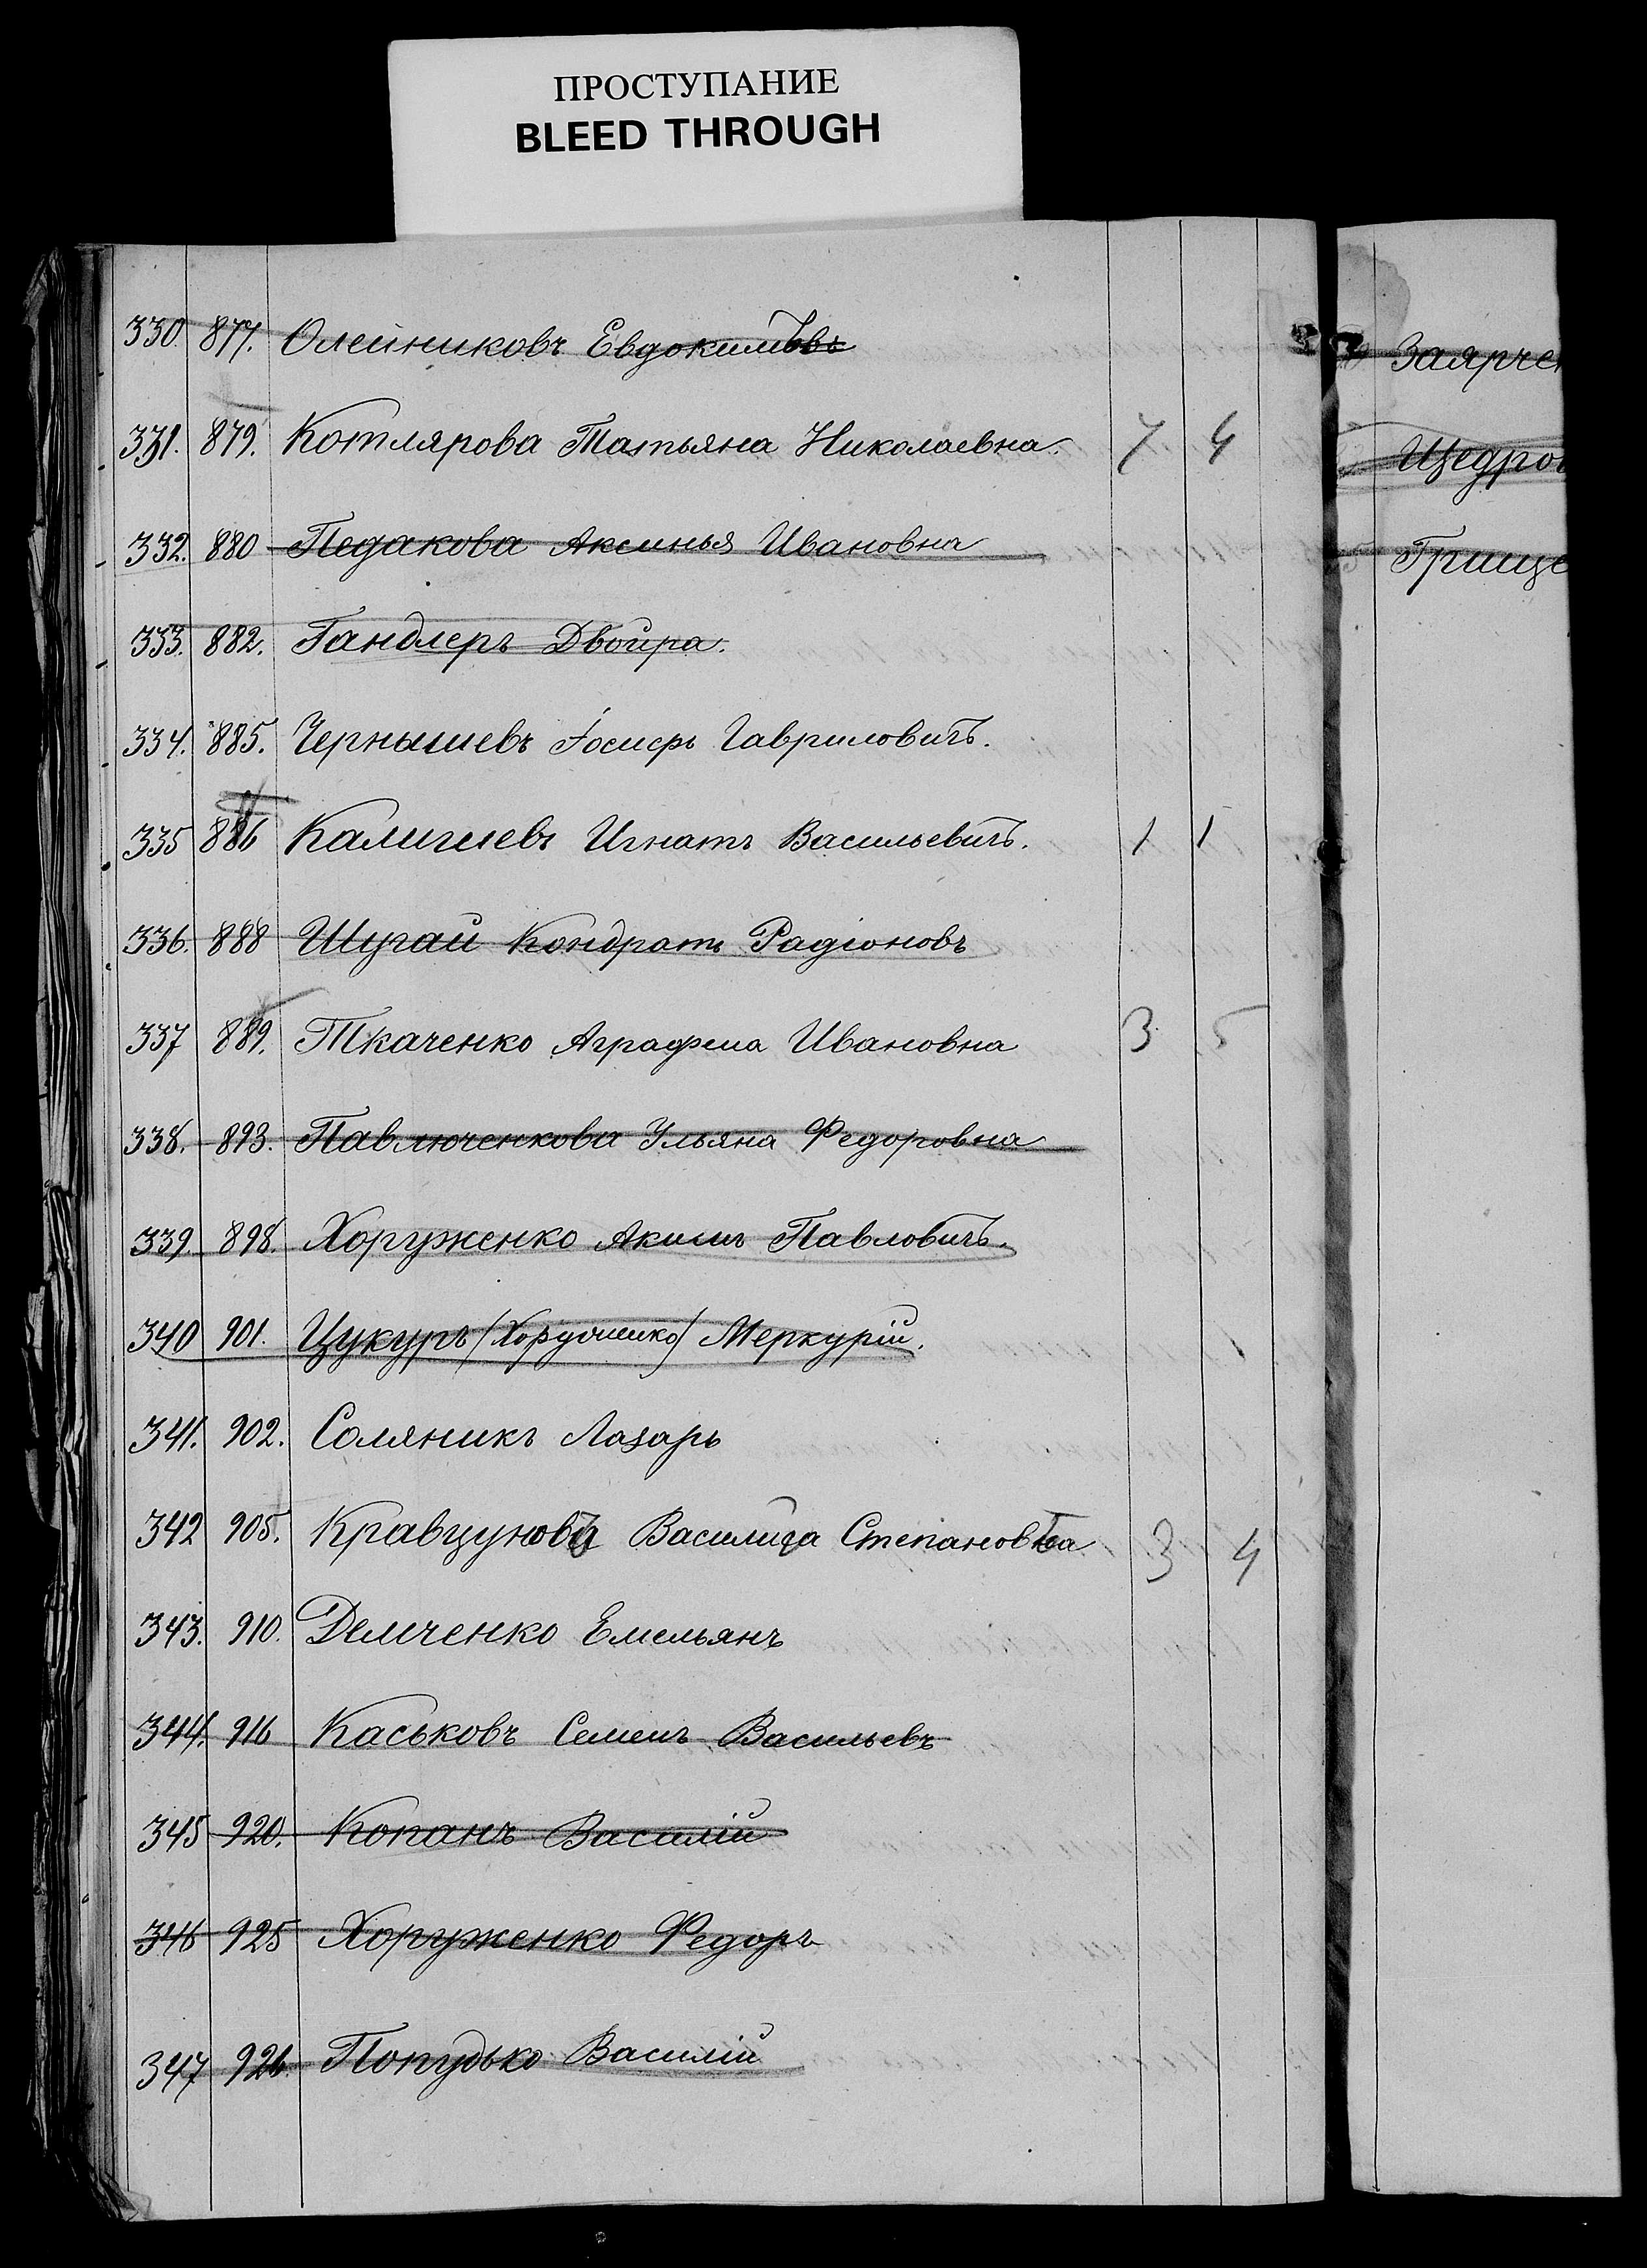 ПРОСТУПАНИЕ
BLEED THROUGH
330 877. Олейниковъ Евдокимъ
331. 879. Котлярова Татьяна Николаевна. 7 4
332. 880 Педакова Аксинья Ивановна
333. 882. Гандлеръ Двойра.
334. 885. Чернышевъ Іосифъ Гавриловичъ.
335 886 Игнатъ Васильевичъ. 1 1
336. 888 Шугай Кондратъ Радіоновъ
337 889. Ткаченко Аграфена Ивановна 3 5
338. 893. Павлюченкова Ульяна Федоровна
339. 898. Хоруженко Акимъ Павловичъ.
340 901. Цукуръ (Хоруженко) Меркурій.
341. 902. Соляникъ Лазарь
342 905. Кравцунова Василиса Степановна 3 4
343. 910. Демченко Емельянъ
344. 916 Каськовъ Семенъ Васильевъ
345 920. Копанъ Василій
346 925 Хоруженко Федоръ
347 926. Попудько Василій
Заярчен
Щедров
Грище